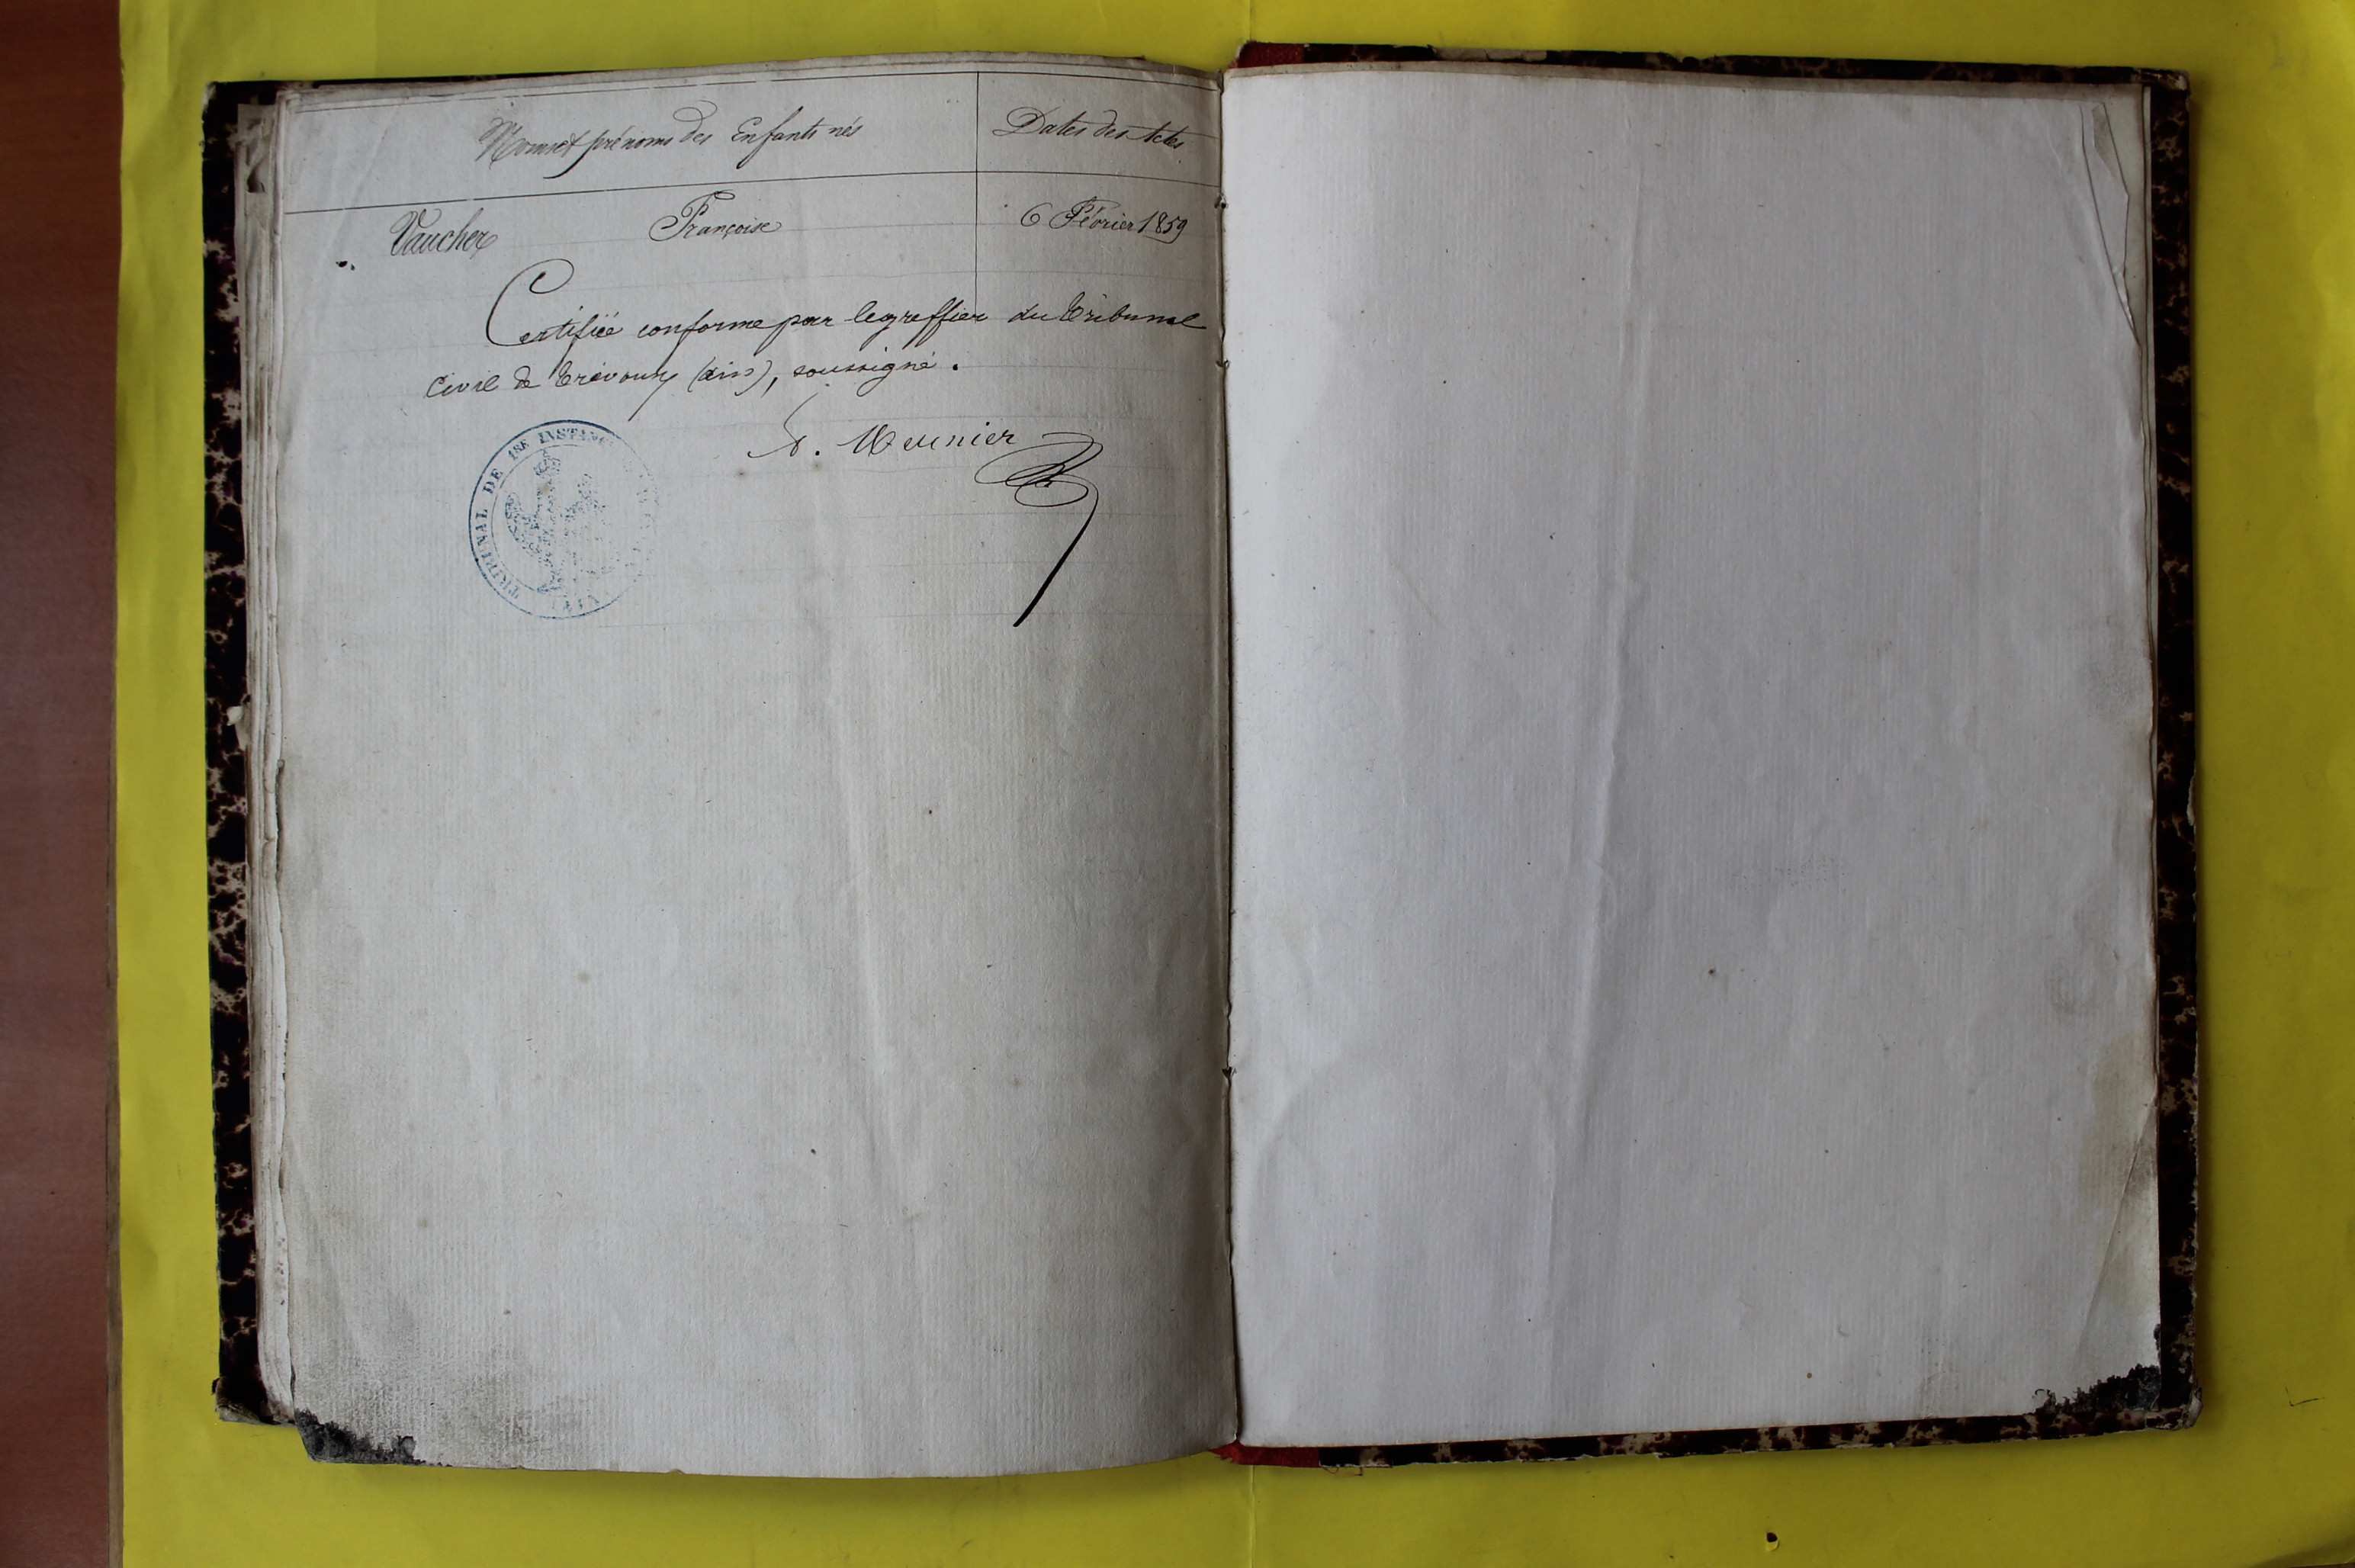 Noms et prénoms des Enfants nés
Dates des Actes
Vaucher Françoise 6 Février 1859
Certifié conforme par le greffier du tribunal
Civil de trévoux (ain), soussigné.
Meunier
TRIBUNAL DE 1RE INSTANCE
(AIN)